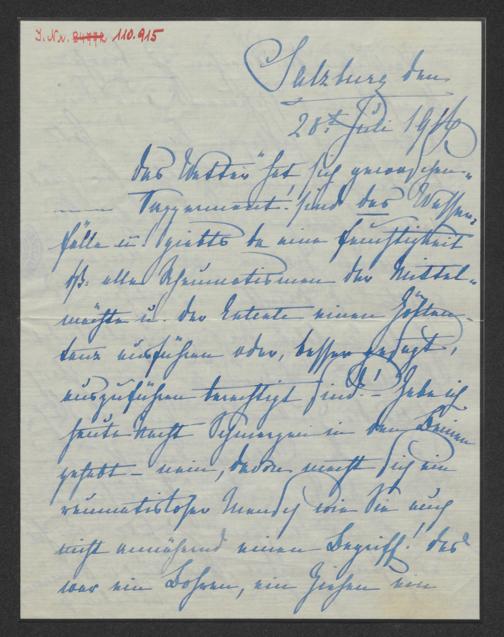 I. Nr. 110.915
Salzburg den
28ten Juli 1916
"Das Wetter" hat sich gewaschen"
Sapperment! sind das Wasser-
fälle u. giebts da eine Feuchtigkeit
daß alle Rheumatismen der Mittel-
mächte u. der Entente einen Höllen-
tanz ausführen oder, besser gesagt,
auszuführen berechtigt sind! – Habe ich
heute Nacht Schmerzen in den Beinen
gehabt – nein, davon macht sich ein
reumatisloser Mensch wie Sie auch
nicht annähernd einen Begriff! Das
war ein Bohren, ein Ziehen ein